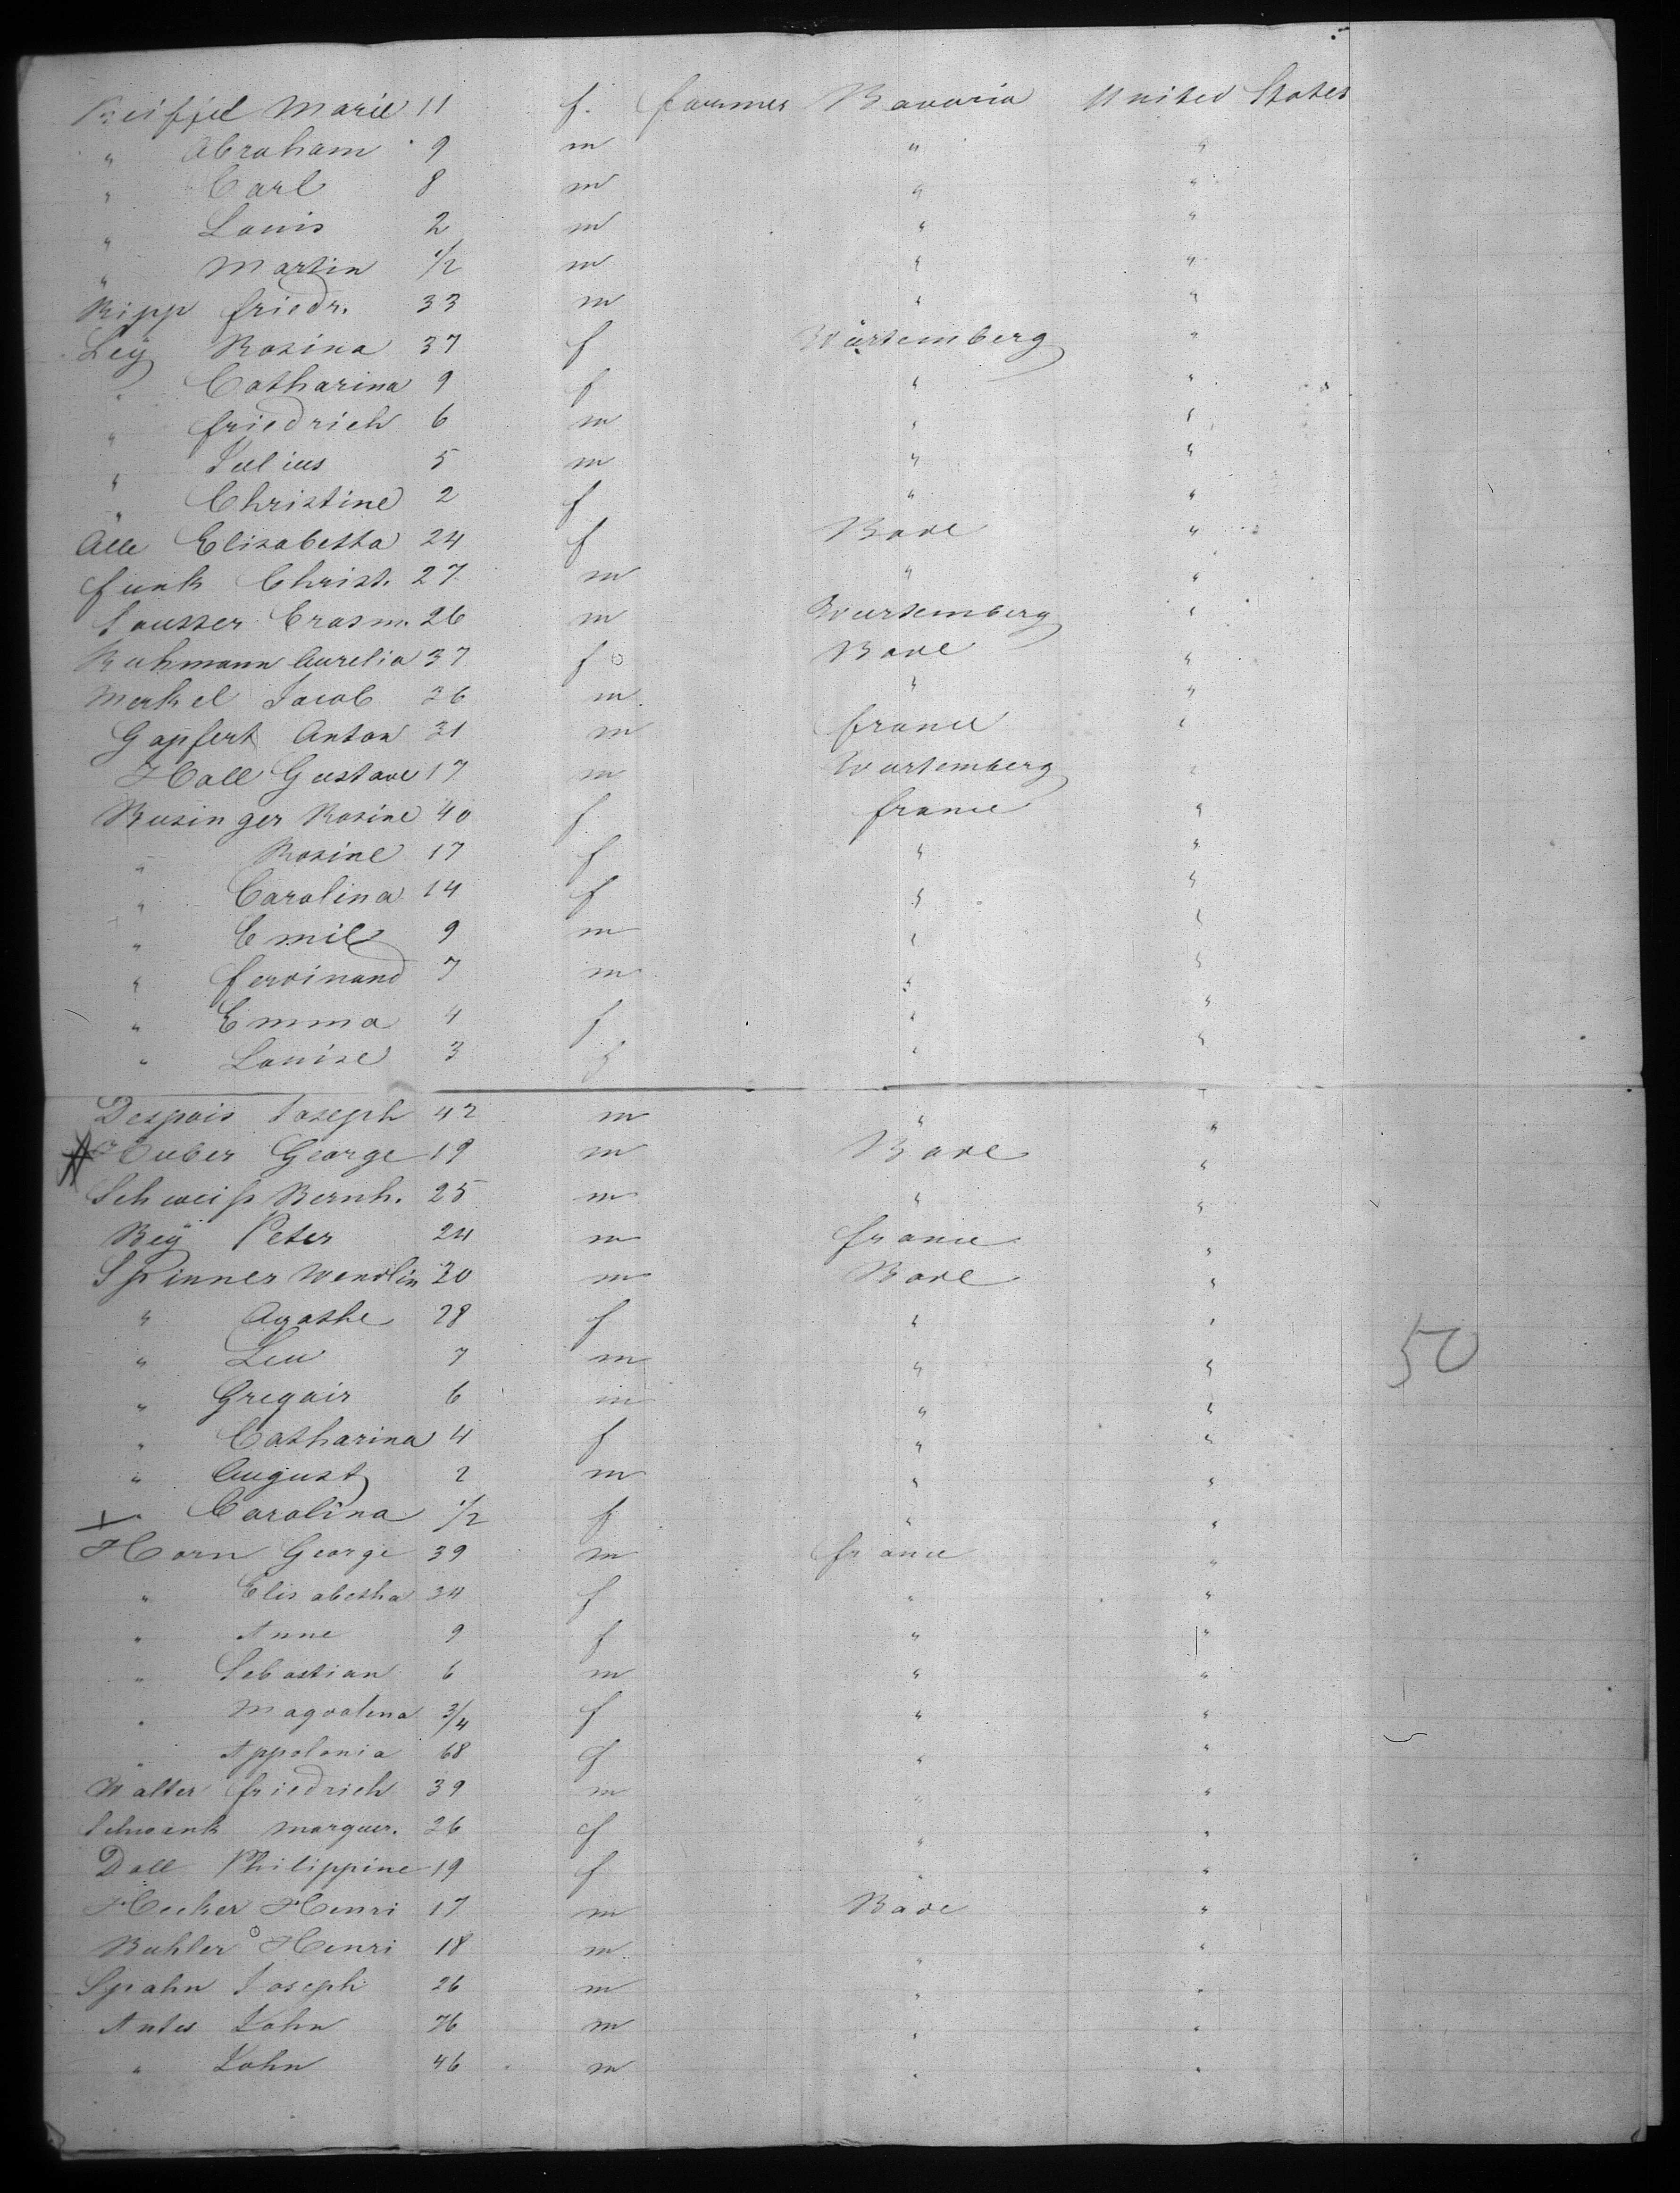 Marie 11 f. farmer Bavaria United States
" Abraham 9 m " "
" Carl 8 m " "
" Louis 2 m " "
" Martin 1/2 m " "
Ripp Friedr. 33 m " "
Leÿ Rosina 37 f Würtemberg "
" Catharina 9 f " "
" Friedrich 6 m " "
" Julius 5 m " "
" Christine 2 f " "
Elisabetha 24 f Bade "
Funk Christ. 27 m " "
Erasm. 26 m Wurtemberg "
Ruhmann Aurelia 37 f Bade "
Merkel Jacob 36 m " "
Gopfert Anton 31 m France "
Gustave 17 m Wurtemberg "
Businger Rosine 40 f France "
" Rosine 17 f " "
" Carolina 14 f " "
" Emil 9 m " "
" Ferdinand 7 m " "
" Emma 4 f " "
" Louise 3 f " "
Despois Joseph 42 m " "
Huber George 19 m Bade "
Schweiss Bernh. 25 m " "
Beÿ Peter 24 m France "
Spinner Wendlin 30 m Bade "
" Agathe 28 f " "
" Leo 7 m " "
" Gregoir 6 m " "
" Catharina 4 f " "
" August 2 m " "
" Carolina 1/2 f " "
Horn George 39 m France "
" Elisabetha 34 f " "
" Anne 9 f " "
" Sebastian 6 m " "
" Magdalena 3/4 f " "
" Appolonia 68 f " "
Walter Friedrich 39 m " "
Schwenk Marguer. 26 f " "
Doll Philippine 19 f " "
Hecker Henri 17 m Bade "
Buhler Henri 18 m " "
Spahn Joseph 26 m " "
Antes John 76 m " "
" John 46 m " "
50